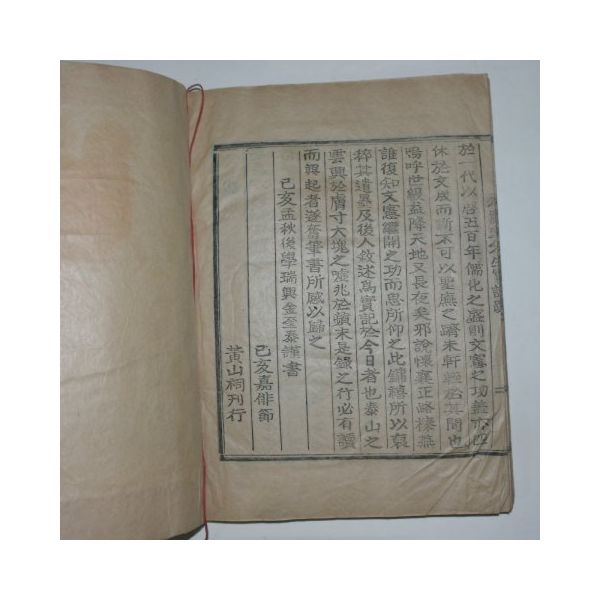 於一代以啓五百年儒化之盛則文憲之功蓋亦四
休於文成而斷不可以聖廡之躋未軒輊於其間也
嗚呼世級益降天地又長夜矣邪說懷襄正路榛蕪
誰復知文憲繼開之功而思所仰之此鏞禧所以裒
稡其遺墨及後人敘述爲實記於今日者也泰山之
雲興於膚寸大塊之噓兆於蘋末是錄之行必有讀
而誤起者遂奮筆書所感以歸之
己亥孟秋後學瑞興金至泰謹書
己亥嘉俳節
黃山祠刊行